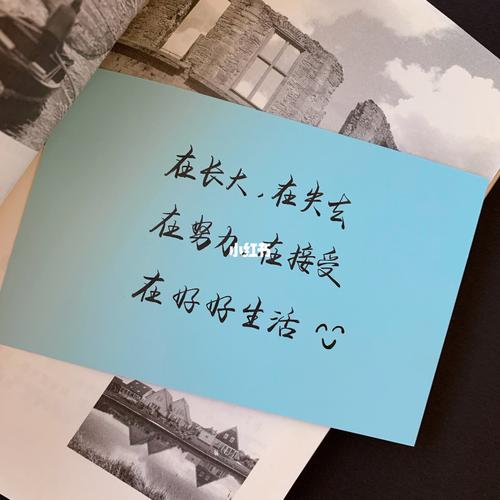 在长大，在失去
在努力 在接受
小红书
在好好生活